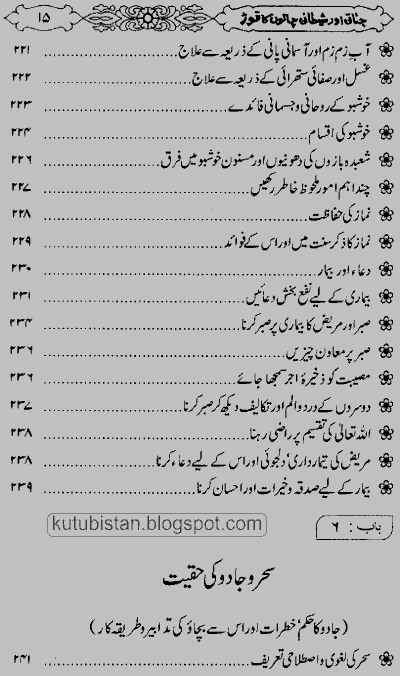 جناتی اور شیطانی چالوں کا توڑ ۱۵
آبِ زم زم اور آسمانی پانی کے ذریعہ سے علاج ۲۲۱
غسل اور صفائی ستھرائی کے ذریعہ سے علاج ۲۲۲
خوشبو کے روحانی وجسمانی فائدے ۲۲۳
خوشبو کی اقسام ۲۲۴
شعبدہ بازوں کی دھونیوں اور مسنون خوشبو میں فرق ۲۲۶
چند اہم امور ملحوظ خاطر رکھیں ۲۲۷
نماز کی حفاظت ۲۲۸
نماز کا ذکر سنت میں اور اس کے فوائد ۲۲۹
دعاء اور بیمار ۲۳۰
بیماری کے لیے نفع بخش دعائیں ۲۳۱
صبر اور مریض کا بیماری پر صبر کرنا ۲۳۴
صبر پر معاون چیزیں ۲۳۶
مصیبت کو ذخیرۂ اجر سمجھا جائے ۲۳۶
دوسروں کے درد والم اور تکالیف دیکھ کر صبر کرنا ۲۳۷
اللہ تعالیٰ کی تقسیم پر راضی رہنا ۲۳۸
مریض کی تیمارداری‘ دلجوئی اور اس کے لیے دعاء کرنا ۲۳۸
بیمار کے لیے صدقہ وخیرات اور احسان کرنا ۲۳۹
kutubistan.blogspot.com
باب : ۶
سحر و جادو کی حقیقت
(جادو کا حکم‘ خطرات اور اس سے بچاؤ کی تدابیر و طریقہ کار)
سحر کی لغوی واصطلاحی تعریف ۲۴۱